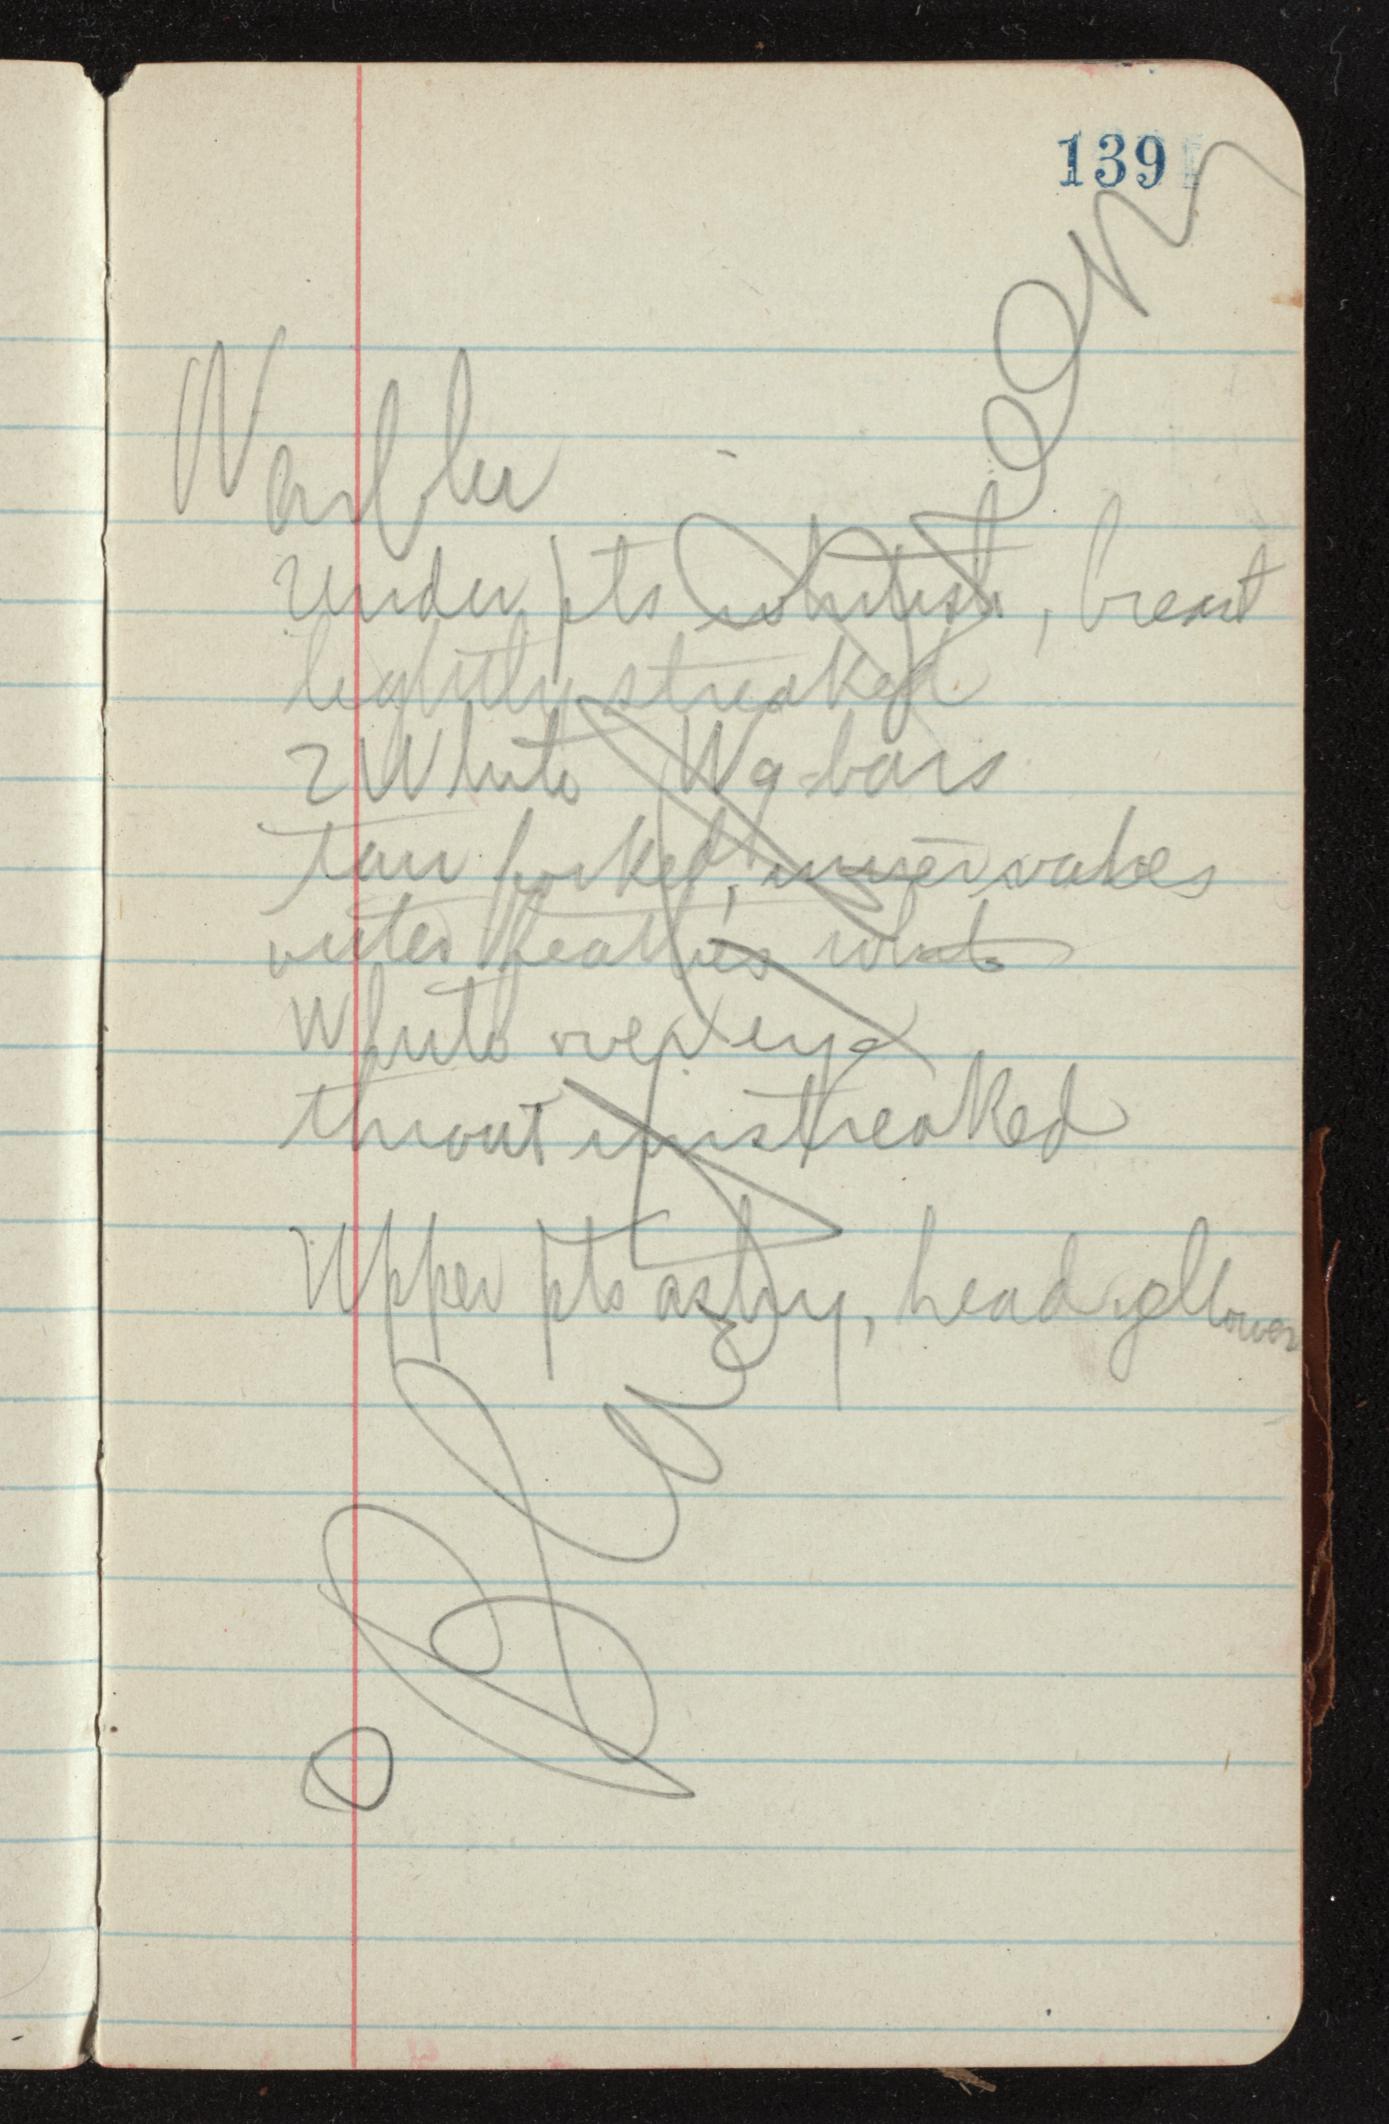 139
Warbler
Under pts whitish, breast
lightly streaked
2 White Wg bars
tail forked, inner vanes
outer feathers white
White over eye
throat unstreaked
Upper pts ashy, head yellower